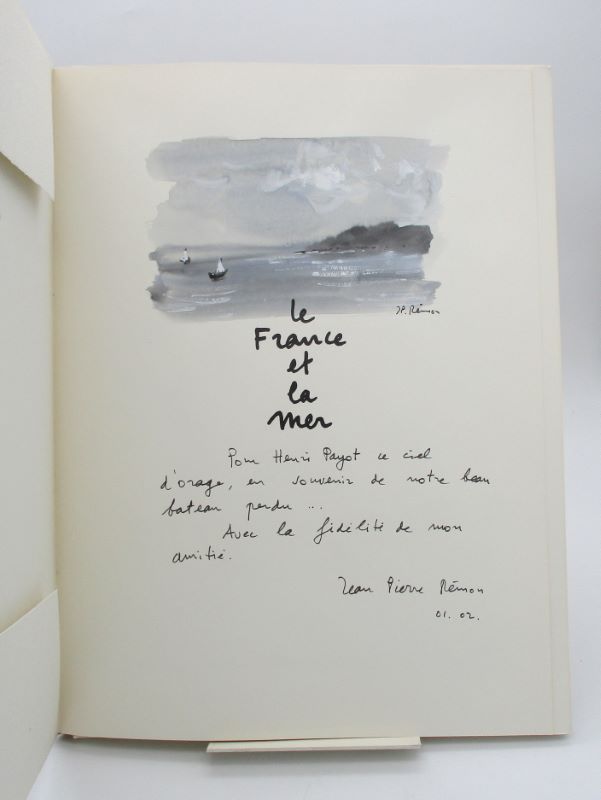 JP. Rémon
le
France
et
la
mer
Pour Henri Payot ce ciel
d'orage, en souvenir de notre beau
bateau perdu ...
Avec la fidélité de mon
amitié.
Jean Pierre Rémon
01. 02.